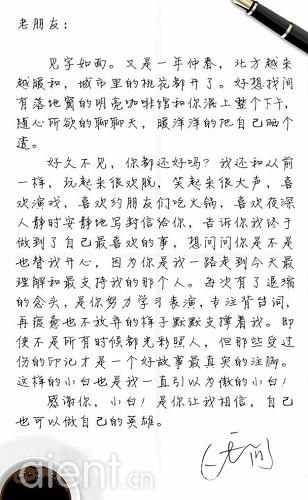 老朋友：
见字如面。又是一年仲春，北方越来
越暖和，城市里的桃花都开了。好想找间
有落地窗的明亮咖啡馆和你混上整个下午，
随心所欲的聊聊天，暖洋洋的把自己晒个
透。
好久不见，你都还好吗？我还和从前
一样，玩起来很欢脱，笑起来很大声，喜
欢演戏，喜欢约朋友们吃火锅，喜欢夜深
人静时安静地写封信给你，告诉你我终于
做到了自己最喜欢的事，想问问你是不是
也替我开心，因为你是我一路走到今天最
理解和最支持我的那个人。每次有了退缩
的念头，是你努力学习表演，专注背台词，
再疲惫也不放弃的样子默默支撑着我。即
使不是所有时候都光彩照人，但那些受过
伤的印记才是一个好故事最真实的注脚。
这样的小白也是我一直引以为傲的小白！
感谢你，小白！是你让我相信，自己
也可以做自己的英雄。
aient.cn